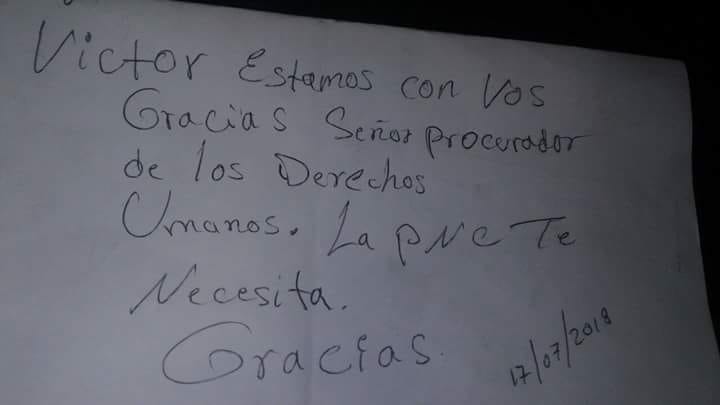 Victor Estamos con Vos
Gracias Señor procurador
de los Derechos
Umanos. La PNC Te
Necesita.
Gracias.
17/07/2018